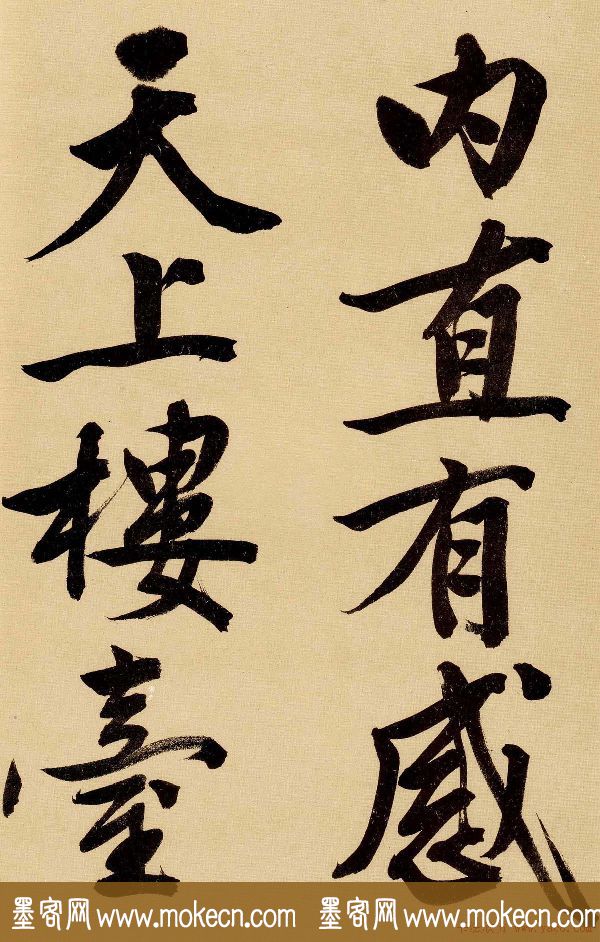 内直有感
天上樓臺
墨客网 www.mokecn.com 墨客网 www.mokecn.com